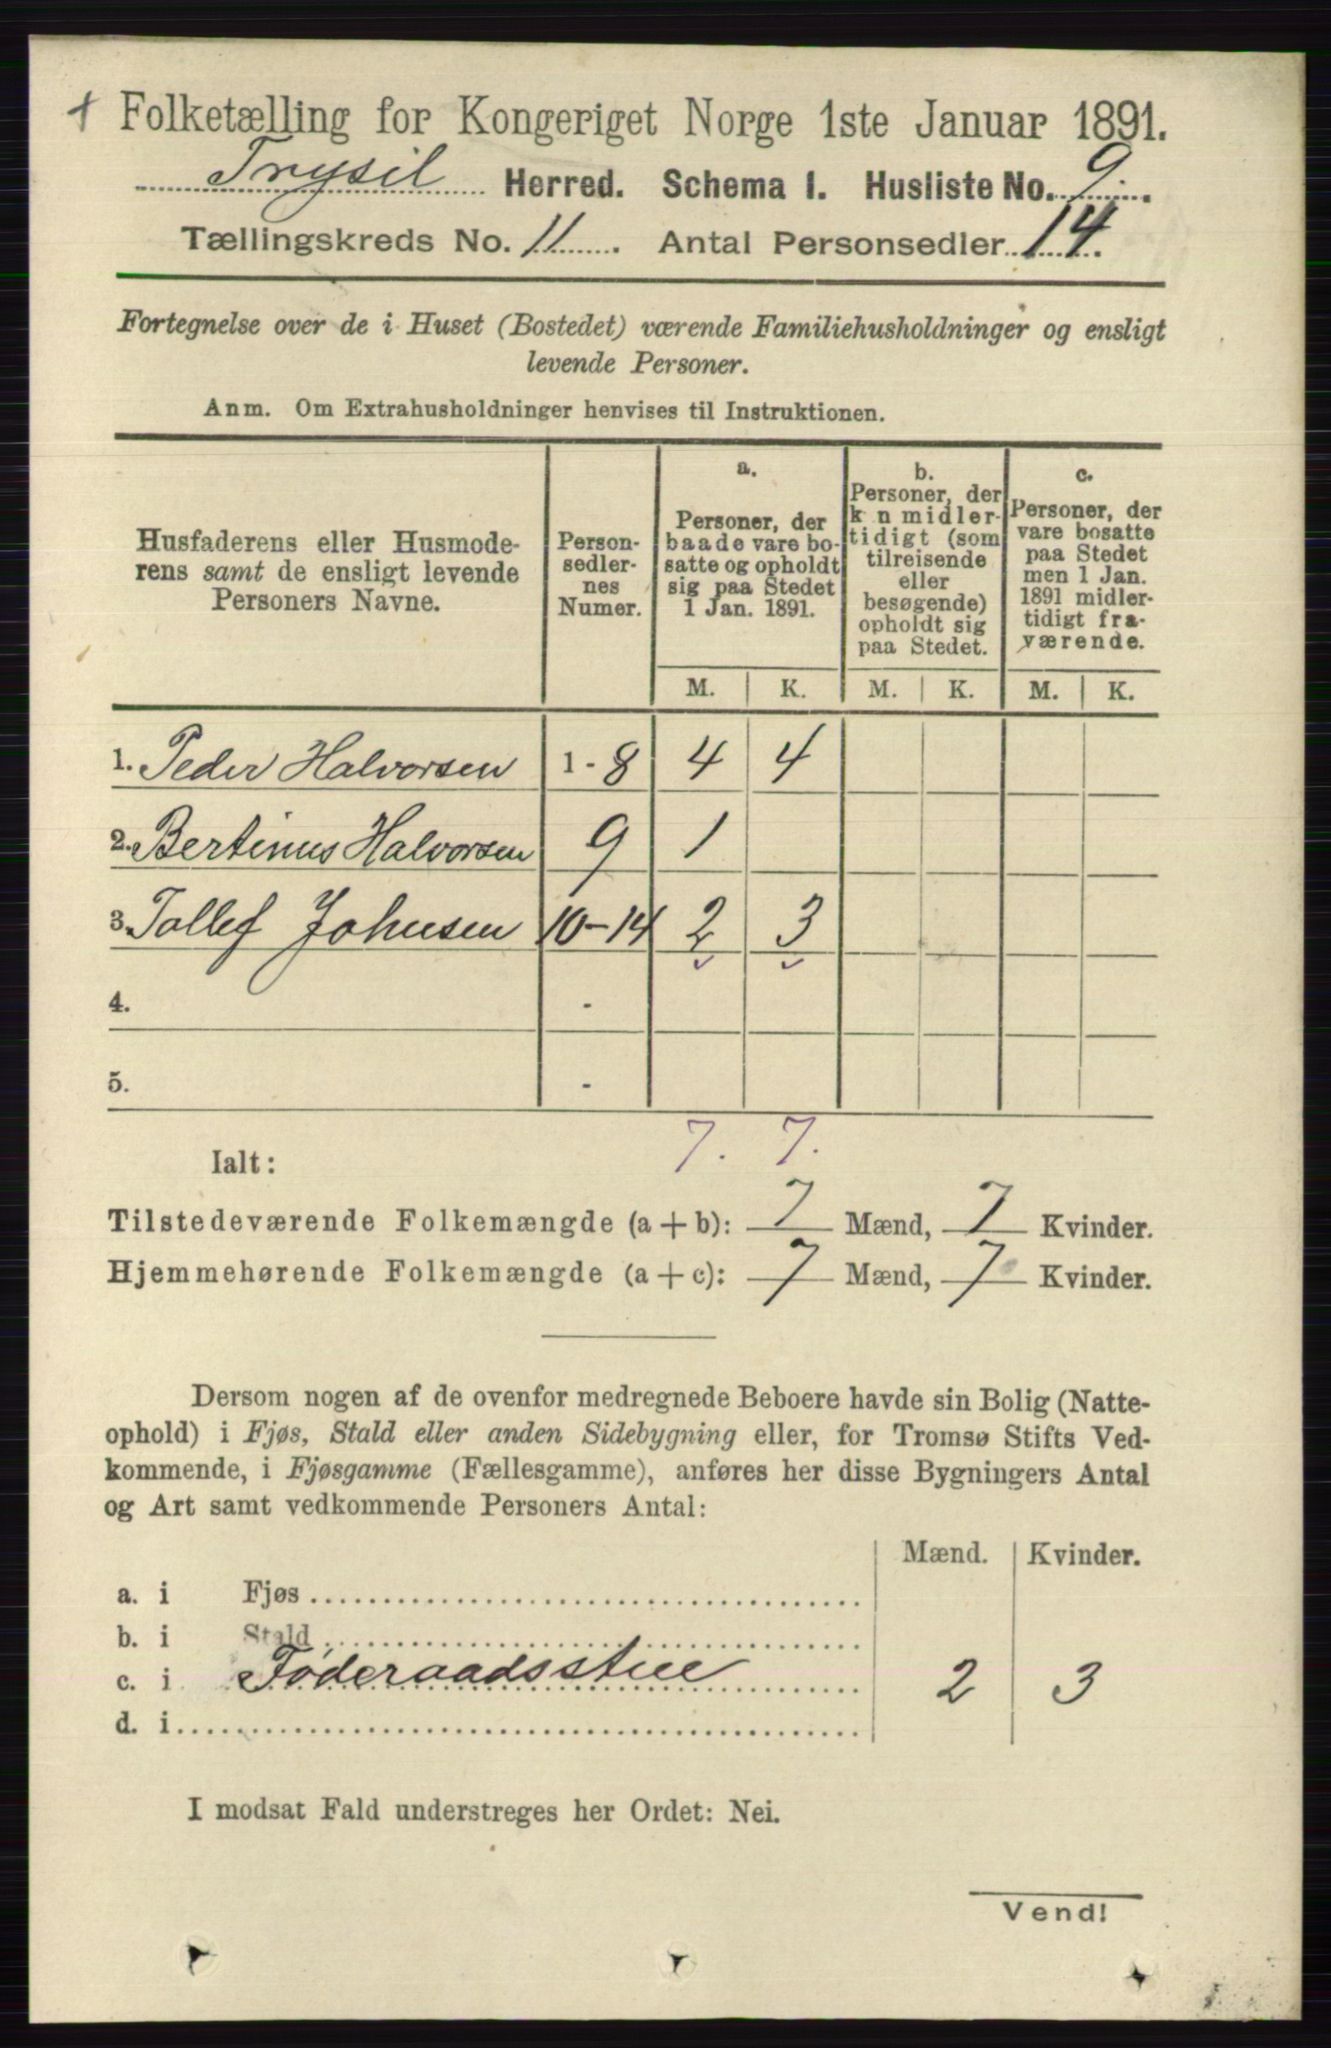 Folketælling for Kongeriget Norge 1ste Januar 1891.
Trysil Herred. Schema 1. Husliste No. 9.
Tællingskreds No. 11. Antal Personsedler 14.
Fortegnelse over de i Huset (Bostedet) værende Familiehusholdninger og ensligt
levende Personer.
Anm. Om Extrahusholdninger henvises til Instruktionen.
Husfaderens eller Husmode-
rens samt de ensligt levende
Personers Navne.
Person-
sedler-
nes
Numer.
a.
Personer, der
baade vare bo-
satte og opholdt
sig paa Stedet
1 Jan. 1891.
b.
Personer, der
k n midler-
tidigt (som
tilreisende
eller
besøgende)
opholdt sig
paa Stedet.
c.
Personer, der
vare bosatte
paa Stedet
men 1 Jan.
1891 midler-
tidigt fra-
værende.
M. K. M. K. M. K.
1. Peder Halvorsen 1-8 4 4
2. Bertinus Halvorsen 9 1
3. Tollef Johnsen 10-14 2 3
4. -
5. -
Ialt: 7. 7.
Tilstedeværende Folkemængde (a + b): 7 Mænd, 7 Kvinder.
Hjemmehørende Folkemængde (a + c): 7 Mænd, 7 Kvinder.
Dersom nogen af de ovenfor medregnede Beboere havde sin Bolig (Natte-
ophold) i Fjøs, Stald eller anden Sidebygning eller, for Tromsø Stifts Ved-
kommende, i Fjøsgamme (Fællesgamme), anføres her disse Bygningers Antal
og Art samt vedkommende Personers Antal:
Mænd. Kvinder.
a. i Fjøs
b. i Stald
c. i Føderaadsstue 2 3
d. i
I modsat Fald understreges her Ordet: Nei.
Vend!